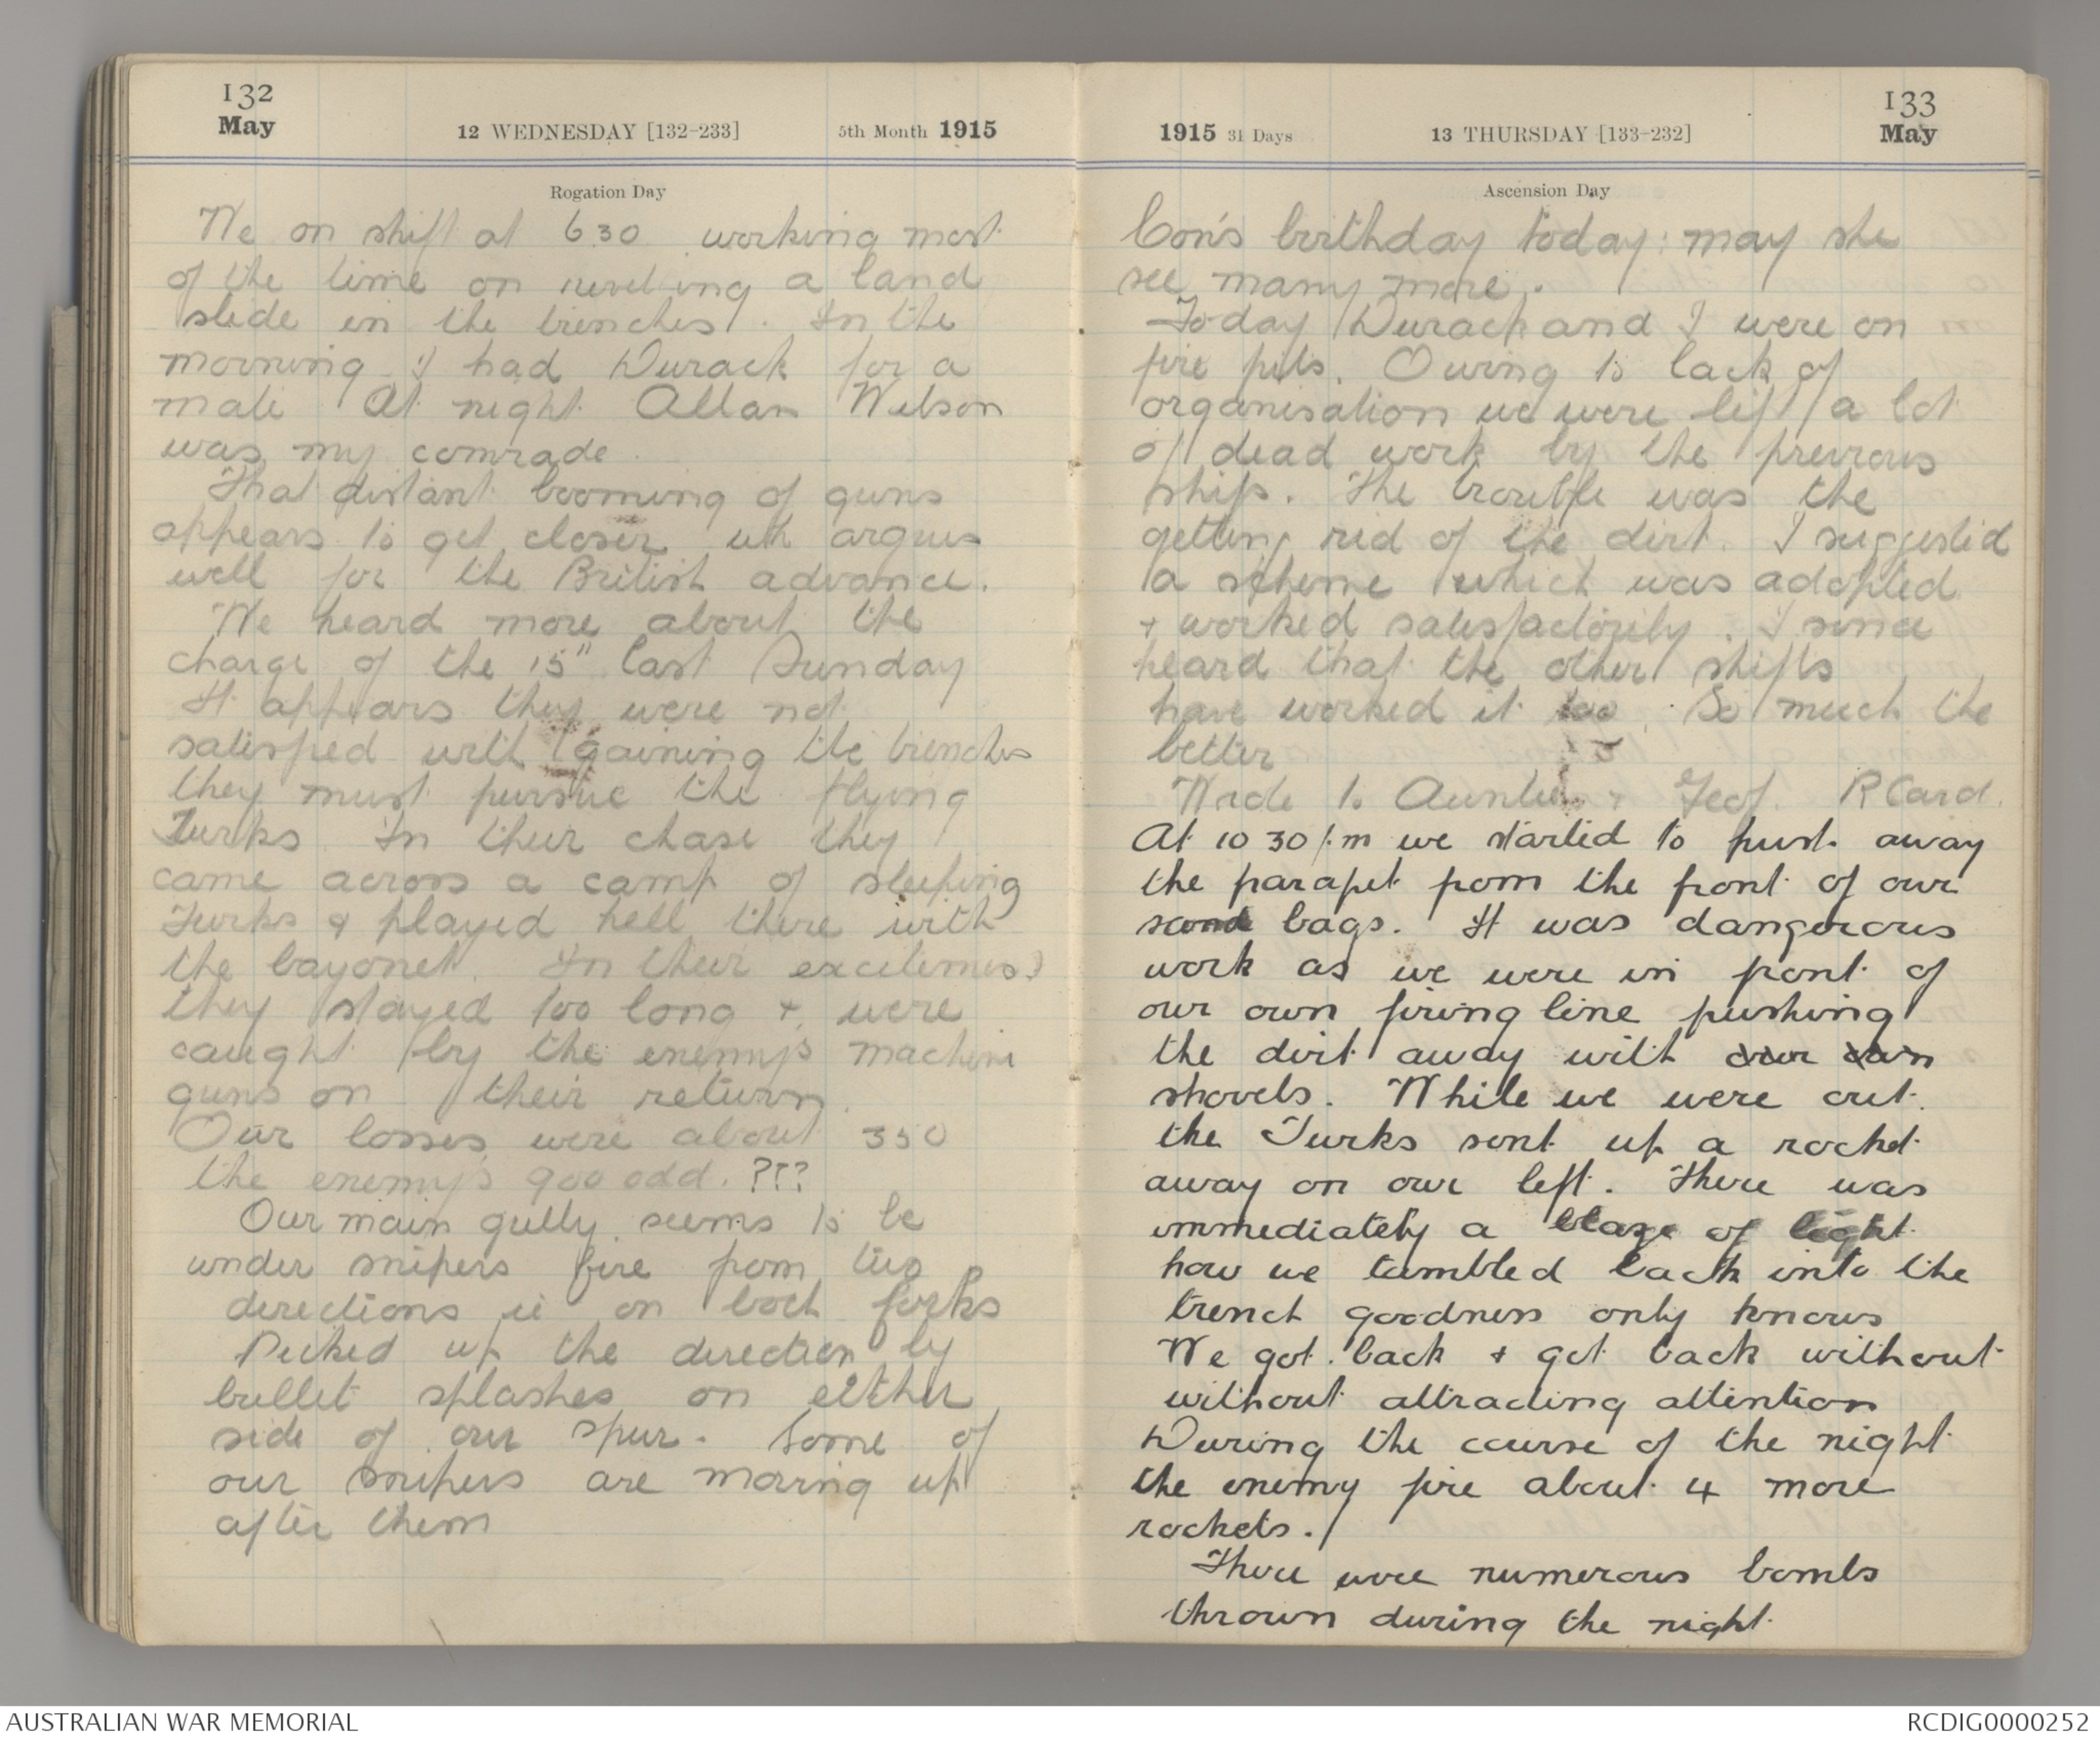 132
May
12 WEDNESDAY [132-233] 5th Month 1915
Rogation Day
We on shift at 6.30 working most
of the time on a land
slide in the trenches. In the
morning I had Durack for a
mate At night Allan Wilson
was my comrade.
That distant booming of guns
appears to get closer wh argues
well for the British advance.
We heard more about the
charge of the 15" last Sunday
It appears they were not
satisfied with gaining the trenches
they must pursue the flying
Turks. In their chase they
came across a camp of sleeping
Turks & played hell there with
the bayonet. In their excitement
they stayed too long & were
caught by the enemy's machine
guns on their return.
Our losses were about 350
the enemy's 900 odd. ???
Our main gully seems to be
under snipers fire from two
directions ie on both forks
Picked up the direction by
bullet splashes on either
side of our spur. Some of
our snipers are moving up
after them
133
May
1915 31 Days 13 THURSDAY [133-232]
Ascension Day
Con's birthday today: may she
see many more.
Today Durack and I were on
fire pits. Owing to lack of
organisation we were left a lot
of dead work by the previous
shift. The trouble was the
getting rid of the dirt. I suggested
a scheme which was adopted
+ worked satisfactorily. I since
heard that the other shifts
have worked it too. So much the
better
Wrote to Auntie + Geof. P Card.
At 10 30 p.m we started to push away
the parapet from the front of our
sand bags. It was dangerous
work as we were in front of
our own firing line pushing
the dirt away with our own
shovels. While we were out.
the Turks sent up a rocket
away on our left. There was
immediately a blaze of light
how we tumbled back into the
trench goodness only knows
We got back + got back without
without attracting attention
During the course of the night
the enemy fire about 4 more
rockets.
There were numerous bombs
thrown during the night
AUSTRALIAN WAR MEMORIAL
RCDIG0000252